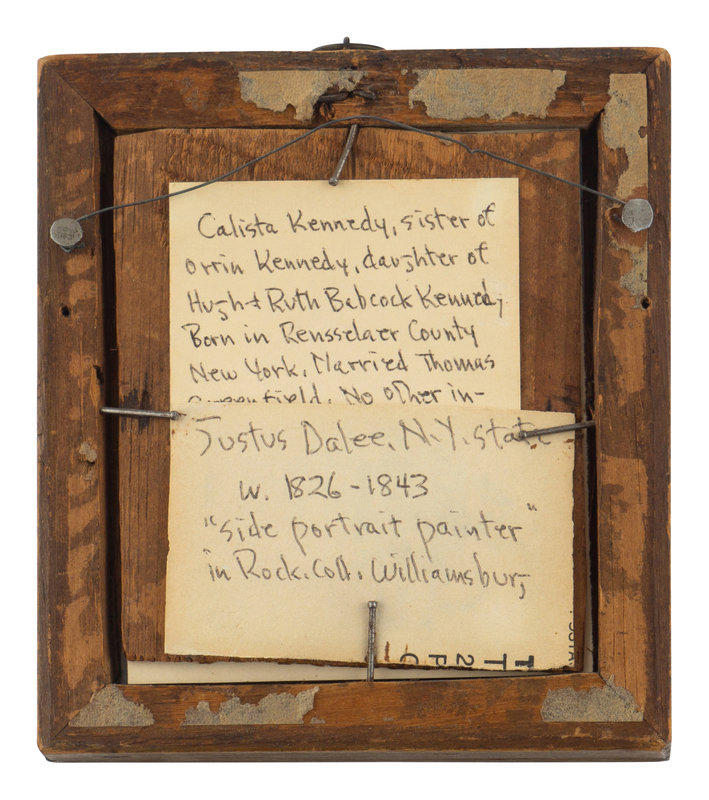 Calista Kennedy, sister of
Orrin Kennedy, daughter of
Hugh & Ruth Babcock Kennedy
Born in Rensselaer County
New York. Married Thomas
Greenfield. No other in-
Justus Dalee, N.Y. state
w. 1826-1843
"side portrait painter"
in Rock. Coll. Williamsburg